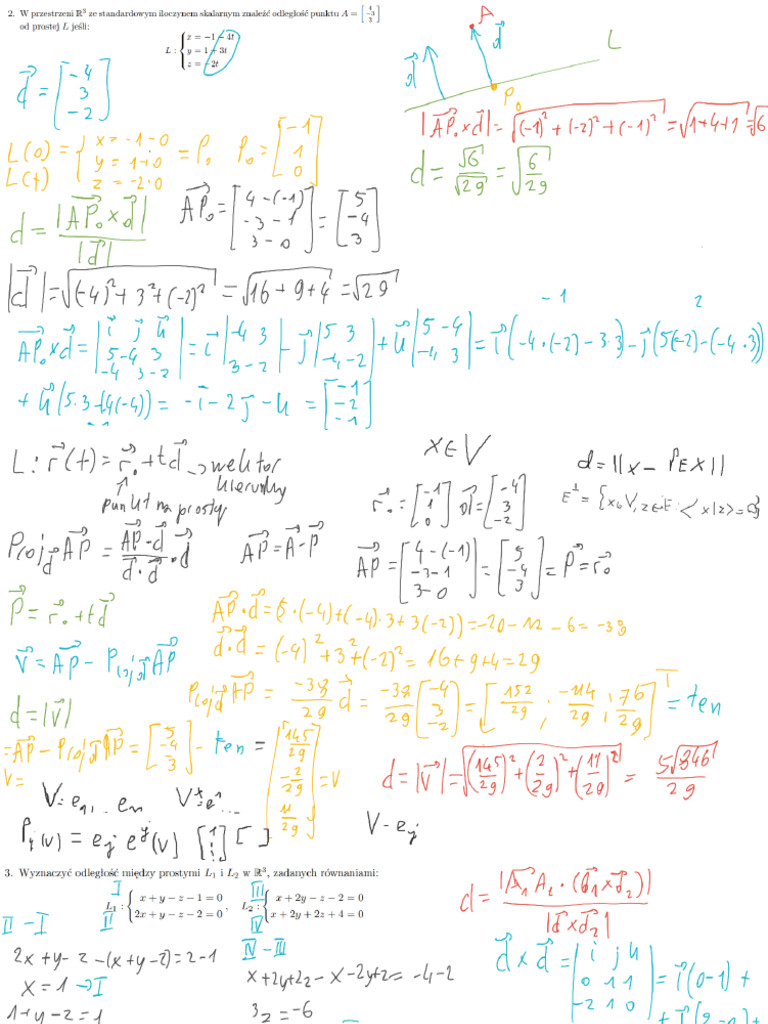 2. W przestrzeni ℝ³ ze standardowym iloczynem skalarnym znaleźć odległość punktu A = [4 -3 3]
od prostej L jeśli:
L : { x = −1 − 4t
y = 1 + 3t
z = −2t
A
d
d
L
P₀
d = [-4 3 -2]
|AP₀×d| = √((-1)²+(-2)²+(-1)²) = √(1+4+1) = √6
L(0) = { x = -1-0
y = 1+0
z = -2·0
= P₀ P₀ = [-1 1 0]
L(t)
d = √6/√29 = √(6/29)
d = |AP₀×d| / |d|
AP₀ = [4-(-1) -3-1 3-0] = [5 -4 3]
|d| = √((-4)²+3²+(-2)²) = √(16+9+4) = √29
-1 2
AP₀×d = |i j k 5 -4 3 -4 3 -2| = i |-4 3 3 -2| - j |5 3 -4 -2| + k |5 -4 -4 3| = i (-4·(-2)-3·3) - j (5(-2)-(-4·3))
+ k (5·3-(-4)(-4)) = -i-2j-k = [-1 -2 -1]
L: r(t) = r₀ + td → wektor kierunkowy
punkt na prostej
x∈V
d = ||x - P_E x||
r₀ = [-1 1 0] d = [-4 3 -2]
E^⊥ = {x∈V, z∈E: <x|z> = 0}
Proj_d AP = AP·d / d·d · d
AP = A-P
AP = [4-(-1) -3-1 3-0] = [5 -4 3] = P = r₀
P = r₀ + td
AP·d = 5·(-4)+(-4)·3+3(-2) = -20-12-6 = -38
V = AP - Proj_d AP
d·d = (-4)²+3²+(-2)² = 16+9+4 = 29
Proj_d AP = -38/29 d = -38/29 [-4 3 -2] = [152/29 ; -114/29 ; 76/29]^T = ten
d = |V|
V = AP - Proj_d AP = [5 -4 3] - ten = [145/29 -2/29 11/29] = V
d = |V| = √((145/29)²+(2/29)²+(11/29)²) = 5√846/29
V = e₁, ... eₙ
V - e_j
3. Wyznaczyć odległość między prostymi L₁ i L₂ w ℝ³, zadanych równaniami:
I III
L₁ : { x + y − z − 1 = 0
2x + y − z − 2 = 0 ,
L₂ : { x + 2y − z − 2 = 0
x + 2y + 2z + 4 = 0
II IV
d = |A₁A₂·(d₁×d₂)| / |d×d₂|
II - I
IV - III
2x+y-z-(x+y-z) = 2-1
x+2y+2z-x-2y+z = -4-2
d×d = |i j k 0 1 1 -2 1 0| = i(0-1)+
x = 1 → I
3z = -6
1+y-z = 1